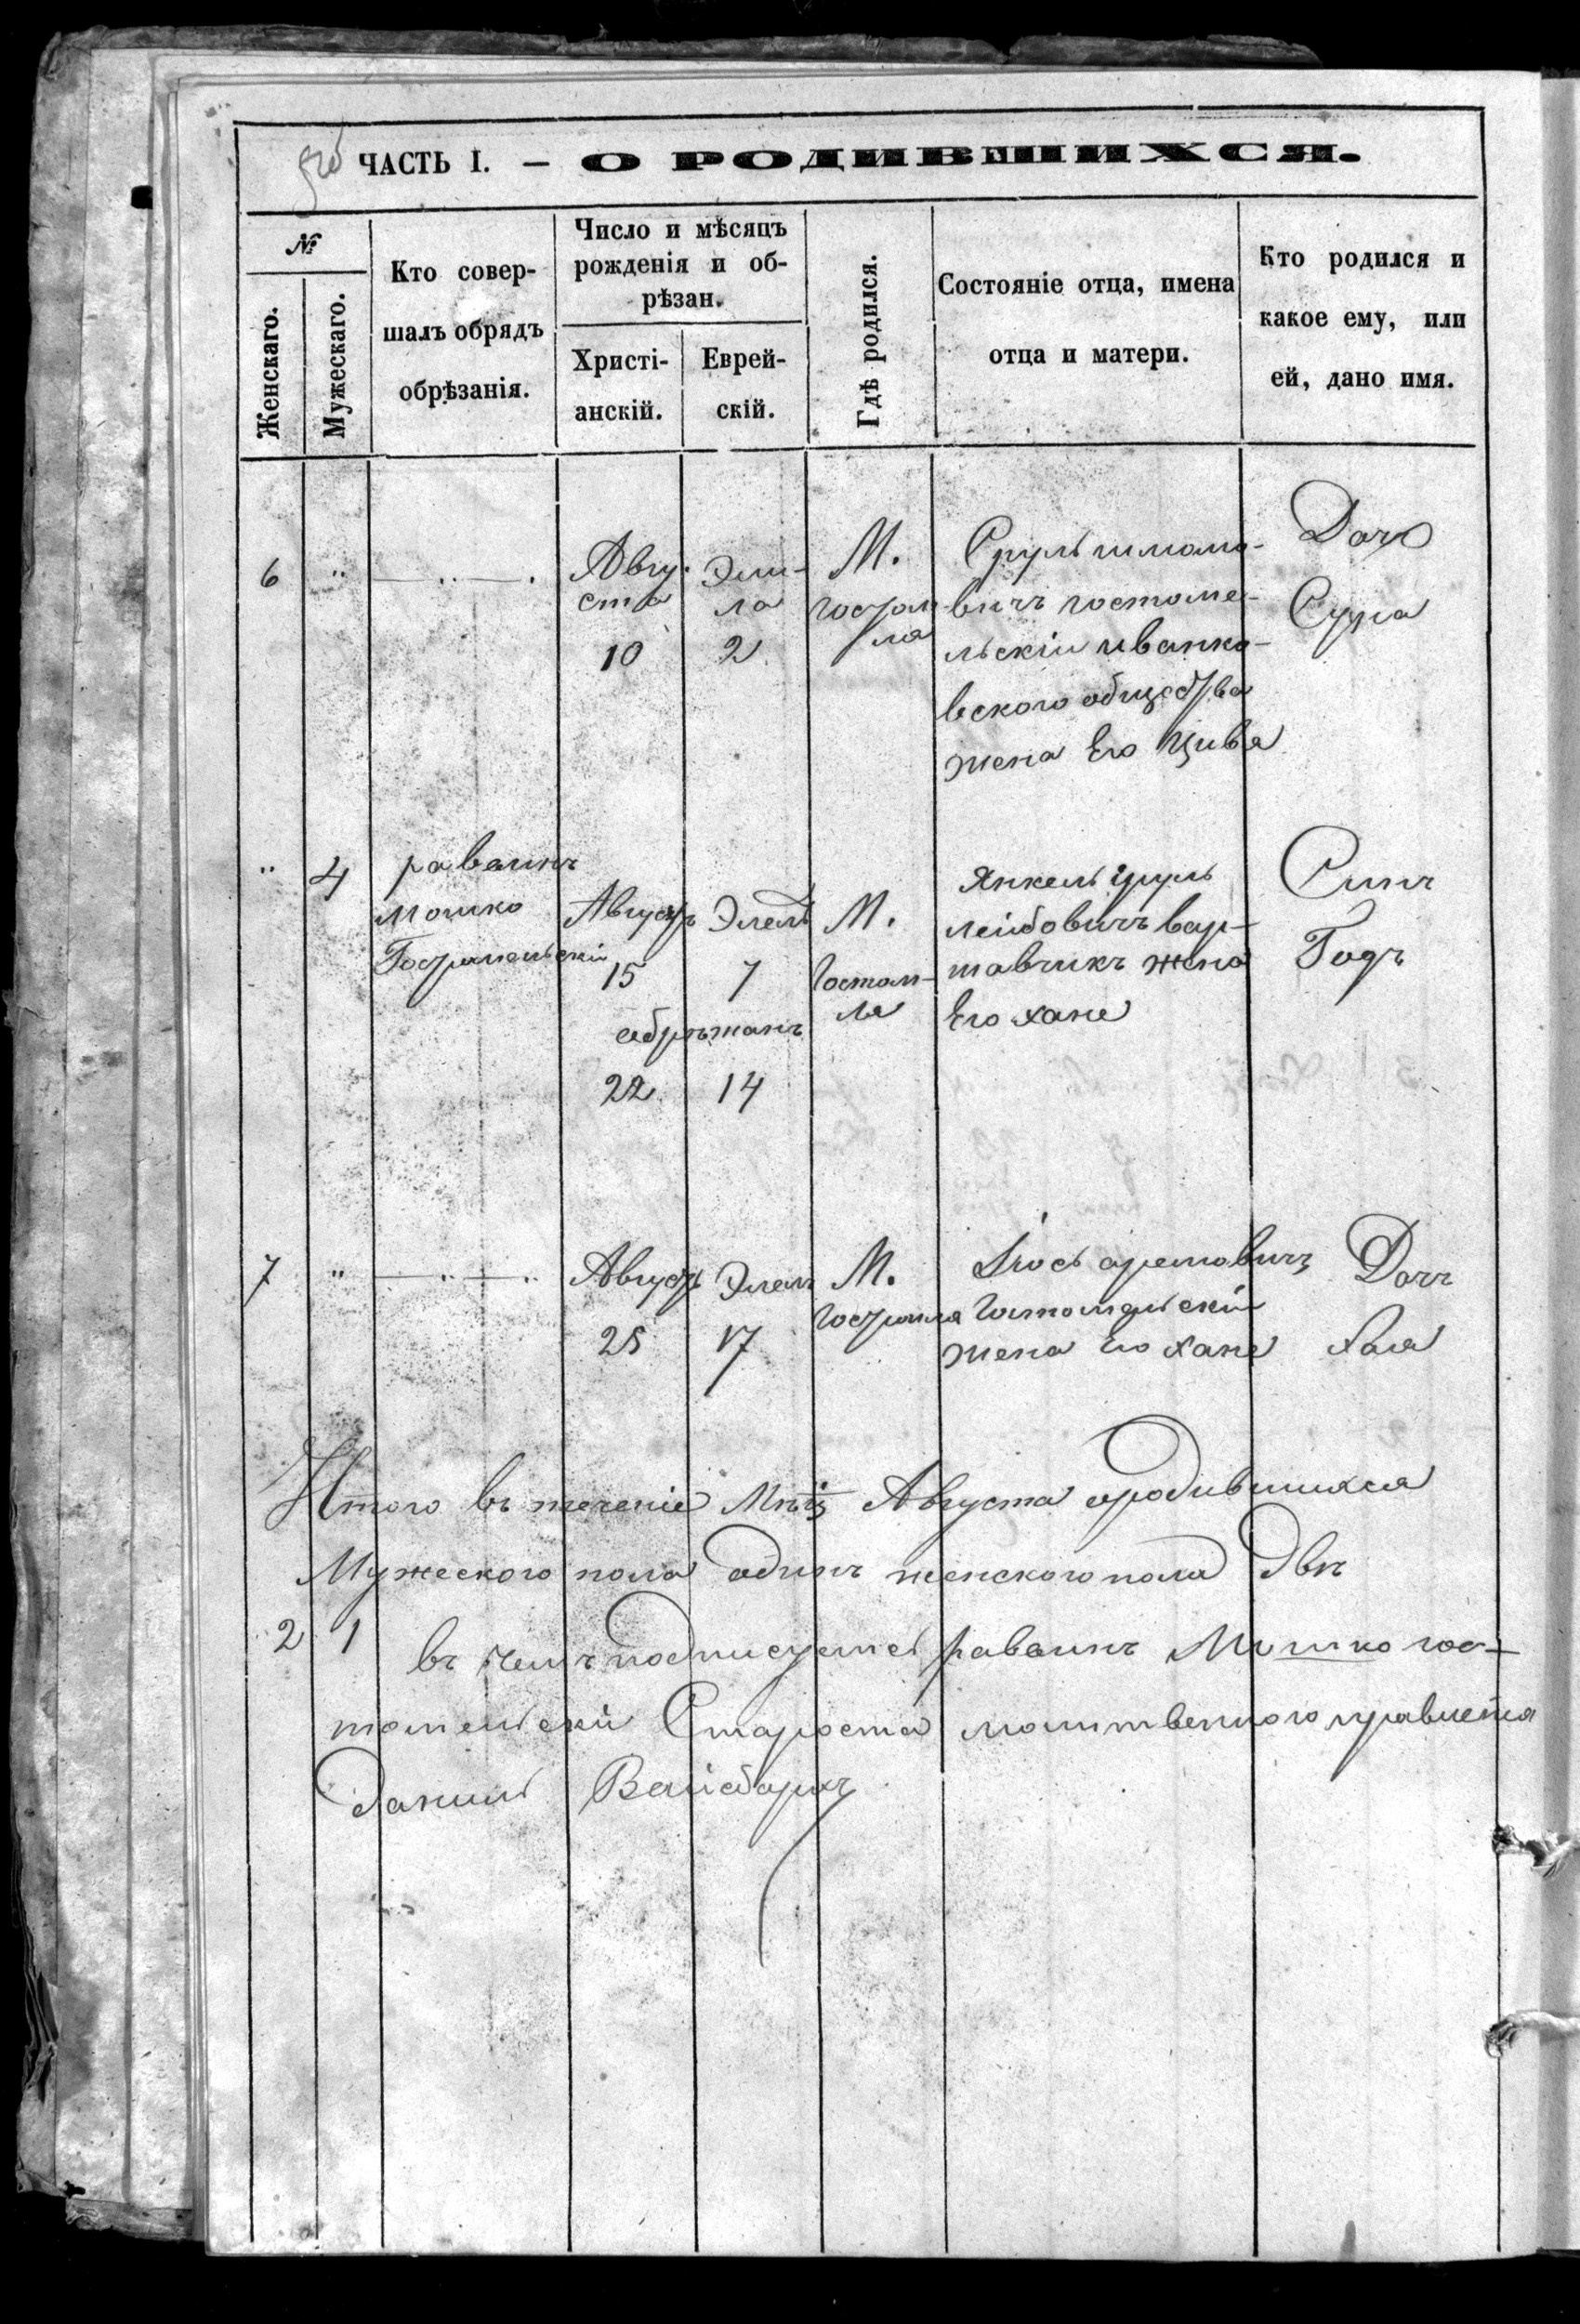 ЧАСТЬ I. — О РОДИВШИХСЯ.
№
Женскаго.
Мужескаго.
Кто совер-
шалъ обрядъ
обрѣзанія.
Число и мѣсяцъ
рожденія и об-
рѣзан.
Христі-
анскій.
Еврей-
скій.
Гдѣ родился.
Состояніе отца, имена
отца и матери.
Кто родился и
какое ему, или
ей, дано имя.
6
Авгу-
ста
10
2
М.
Гостом-
ля
Сруль шмоло-
вичъ гостоме-
льскій иванко-
вского общества
жена Его Цивя
Дочь
Сура
4
раввинъ
Мошко
Гостомельскій
Августъ
15
обрѣжанъ
22
Элелъ
7
14
М.
Гостом-
ля
Янкель Цруль
лейбовичъ вар-
шавчикъ жена
Его хане
Синъ
Годъ
7
Августъ
25
Элелъ
17
М.
Гостомля
Іось
Гостомельскій
жена Его хане
Дочъ
Хая
Итого въ теченіе Мцѣ Августа родившихся
Мужеского пола одинъ женского пола двѣ
2 1
въ чемъ подписуемсѣ раввинъ Мошко гос-
томельскій Староста молитвенного правленія
Данилъ Вайсбархъ